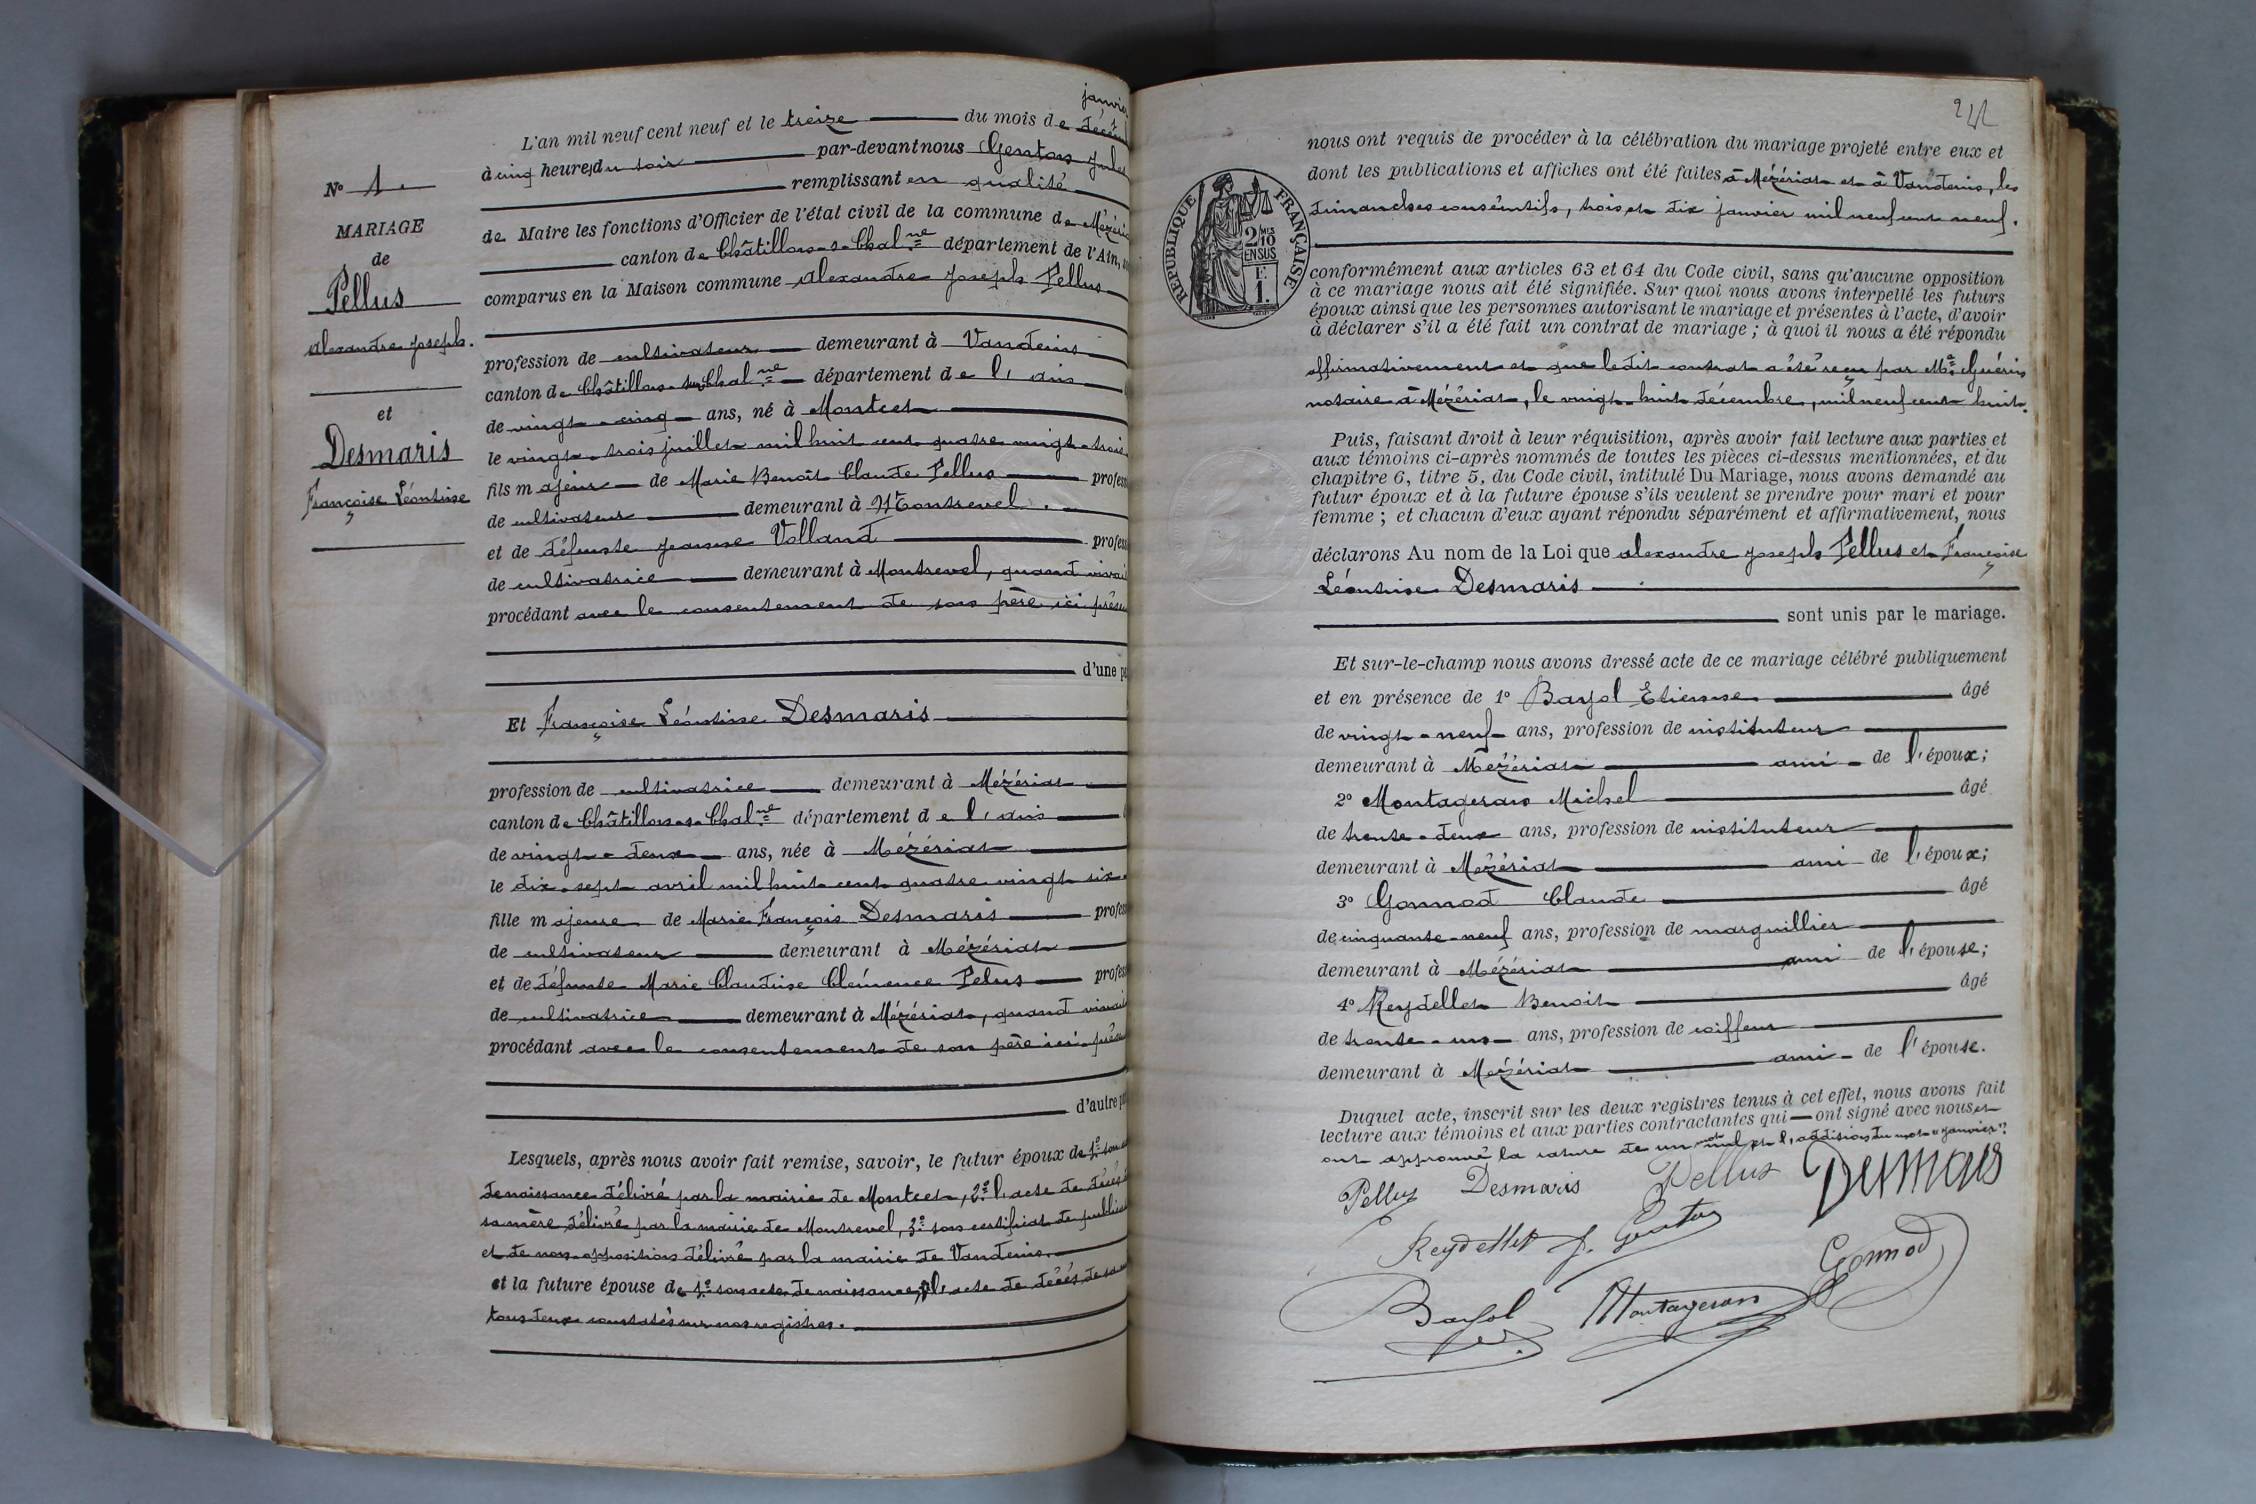 janvier
L'an mil neuf cent neuf et le treize du mois de
à cinq heures du soir par-devant nous Genton Jules
remplissant en qualité
de Maire les fonctions d'Officier de l'état civil de la commune de Mézériat
canton de Châtillon-s-Chal.ne département de l'Ain,
comparus en la Maison commune Alexandre Joseph Pellus
profession de cultivateur demeurant à Vandeins
canton de Châtillon sur Chal.ne département de l'ain
de vingt-cinq ans, né à Montcet
le vingt-trois juillet mil huit cent quatre vingt-trois
fils majeur de Marie Benoît Claude Pellus profess
de cultivateur demeurant à Montrevel.
et de défunte Jeanne Volland profess
de cultivatrice demeurant à Montrevel, quand vivai
procédant avec le consentement de son père ici présen
d'une pa
N° 1.
MARIAGE
de
Pellus
Alexandre Joseph.
et
Desmaris
Françoise Léontine
Et Françoise Léontine Desmaris
profession de cultivatrice demeurant à Mézériat
canton de Châtillon-s-Chal.ne département de l'ain
de vingt-deux ans, née à Mézériat
le dix-sept avril mil huit cent quatre vingt six
fille majeure de Marie François Desmaris profess
de cultivateur demeurant à Mézériat
et de défunte Marie Claudine Clémence Pelus profess
de cultivatrice demeurant à Mézériat, quand vivait
procédant avec le consentement de son père ici présen
d'autre pa
Lesquels, après nous avoir fait remise, savoir, le futur époux de 1° son
de naissance délivré par la mairie de Montcet, 2° l'acte de décès
sa mère, délivré par la mairie de Montrevel, 3° son certificat de publicat
et de non-opposition délivré par la mairie de Vandeins.
et la future épouse de 1° son acte de naissance, l'acte de décès de sa
tous deux constatés sur nos registres.
242
RÉPUBLIQUE FRANÇAISE
2/10
EN SUS
F.
1.
nous ont requis de procéder à la célébration du mariage projeté entre eux et
dont les publications et affiches ont été faites à Mézériat et à Vandeins, les
dimanches consécutifs, trois et dix janvier mil neuf cent neuf.
conformément aux articles 63 et 64 du Code civil, sans qu'aucune opposition
à ce mariage nous ait été signifiée. Sur quoi nous avons interpellé les futurs
époux ainsi que les personnes autorisant le mariage et présentes à l'acte, d'avoir
à déclarer s'il a été fait un contrat de mariage ; à quoi il nous a été répondu
affirmativement et que ledit contrat a été reçu par Me Guérin
notaire à Mézériat, le vingt-huit décembre, mil neuf cent huit.
Puis, faisant droit à leur réquisition, après avoir fait lecture aux parties et
aux témoins ci-après nommés de toutes les pièces ci-dessus mentionnées, et du
chapitre 6, titre 5, du Code civil, intitulé Du Mariage, nous avons demandé au
futur époux et à la future épouse s'ils veulent se prendre pour mari et pour
femme ; et chacun d'eux ayant répondu séparément et affirmativement, nous
déclarons Au nom de la Loi que Alexandre Joseph Pellus et Françoise
Léontine Desmaris
sont unis par le mariage.
Et sur-le-champ nous avons dressé acte de ce mariage célébré publiquement
et en présence de 1° Bayol Etienne âgé
de vingt-neuf ans, profession de instituteur
demeurant à Mézériat ami de l'époux;
2° Montageron Michel âgé
de trente-deux ans, profession de instituteur
demeurant à Mézériat ami de l'époux;
3° Gonnod Claude âgé
de cinquante-neuf ans, profession de marguillier
demeurant à Mézériat ami de l'épouse;
4° Reydellet Benoit âgé
de trente-un ans, profession de coiffeur
demeurant à Mézériat ami de l'épouse.
Duquel acte, inscrit sur les deux registres tenus à cet effet, nous avons fait
lecture aux témoins et aux parties contractantes qui ont signé avec nous et
ont approuvé la rature de un mot nul et l'addition du mot "janvier".
Pellus Desmaris Pellus Desmaris
Reydellet J. Genton Gonnod
Bayol Montageron